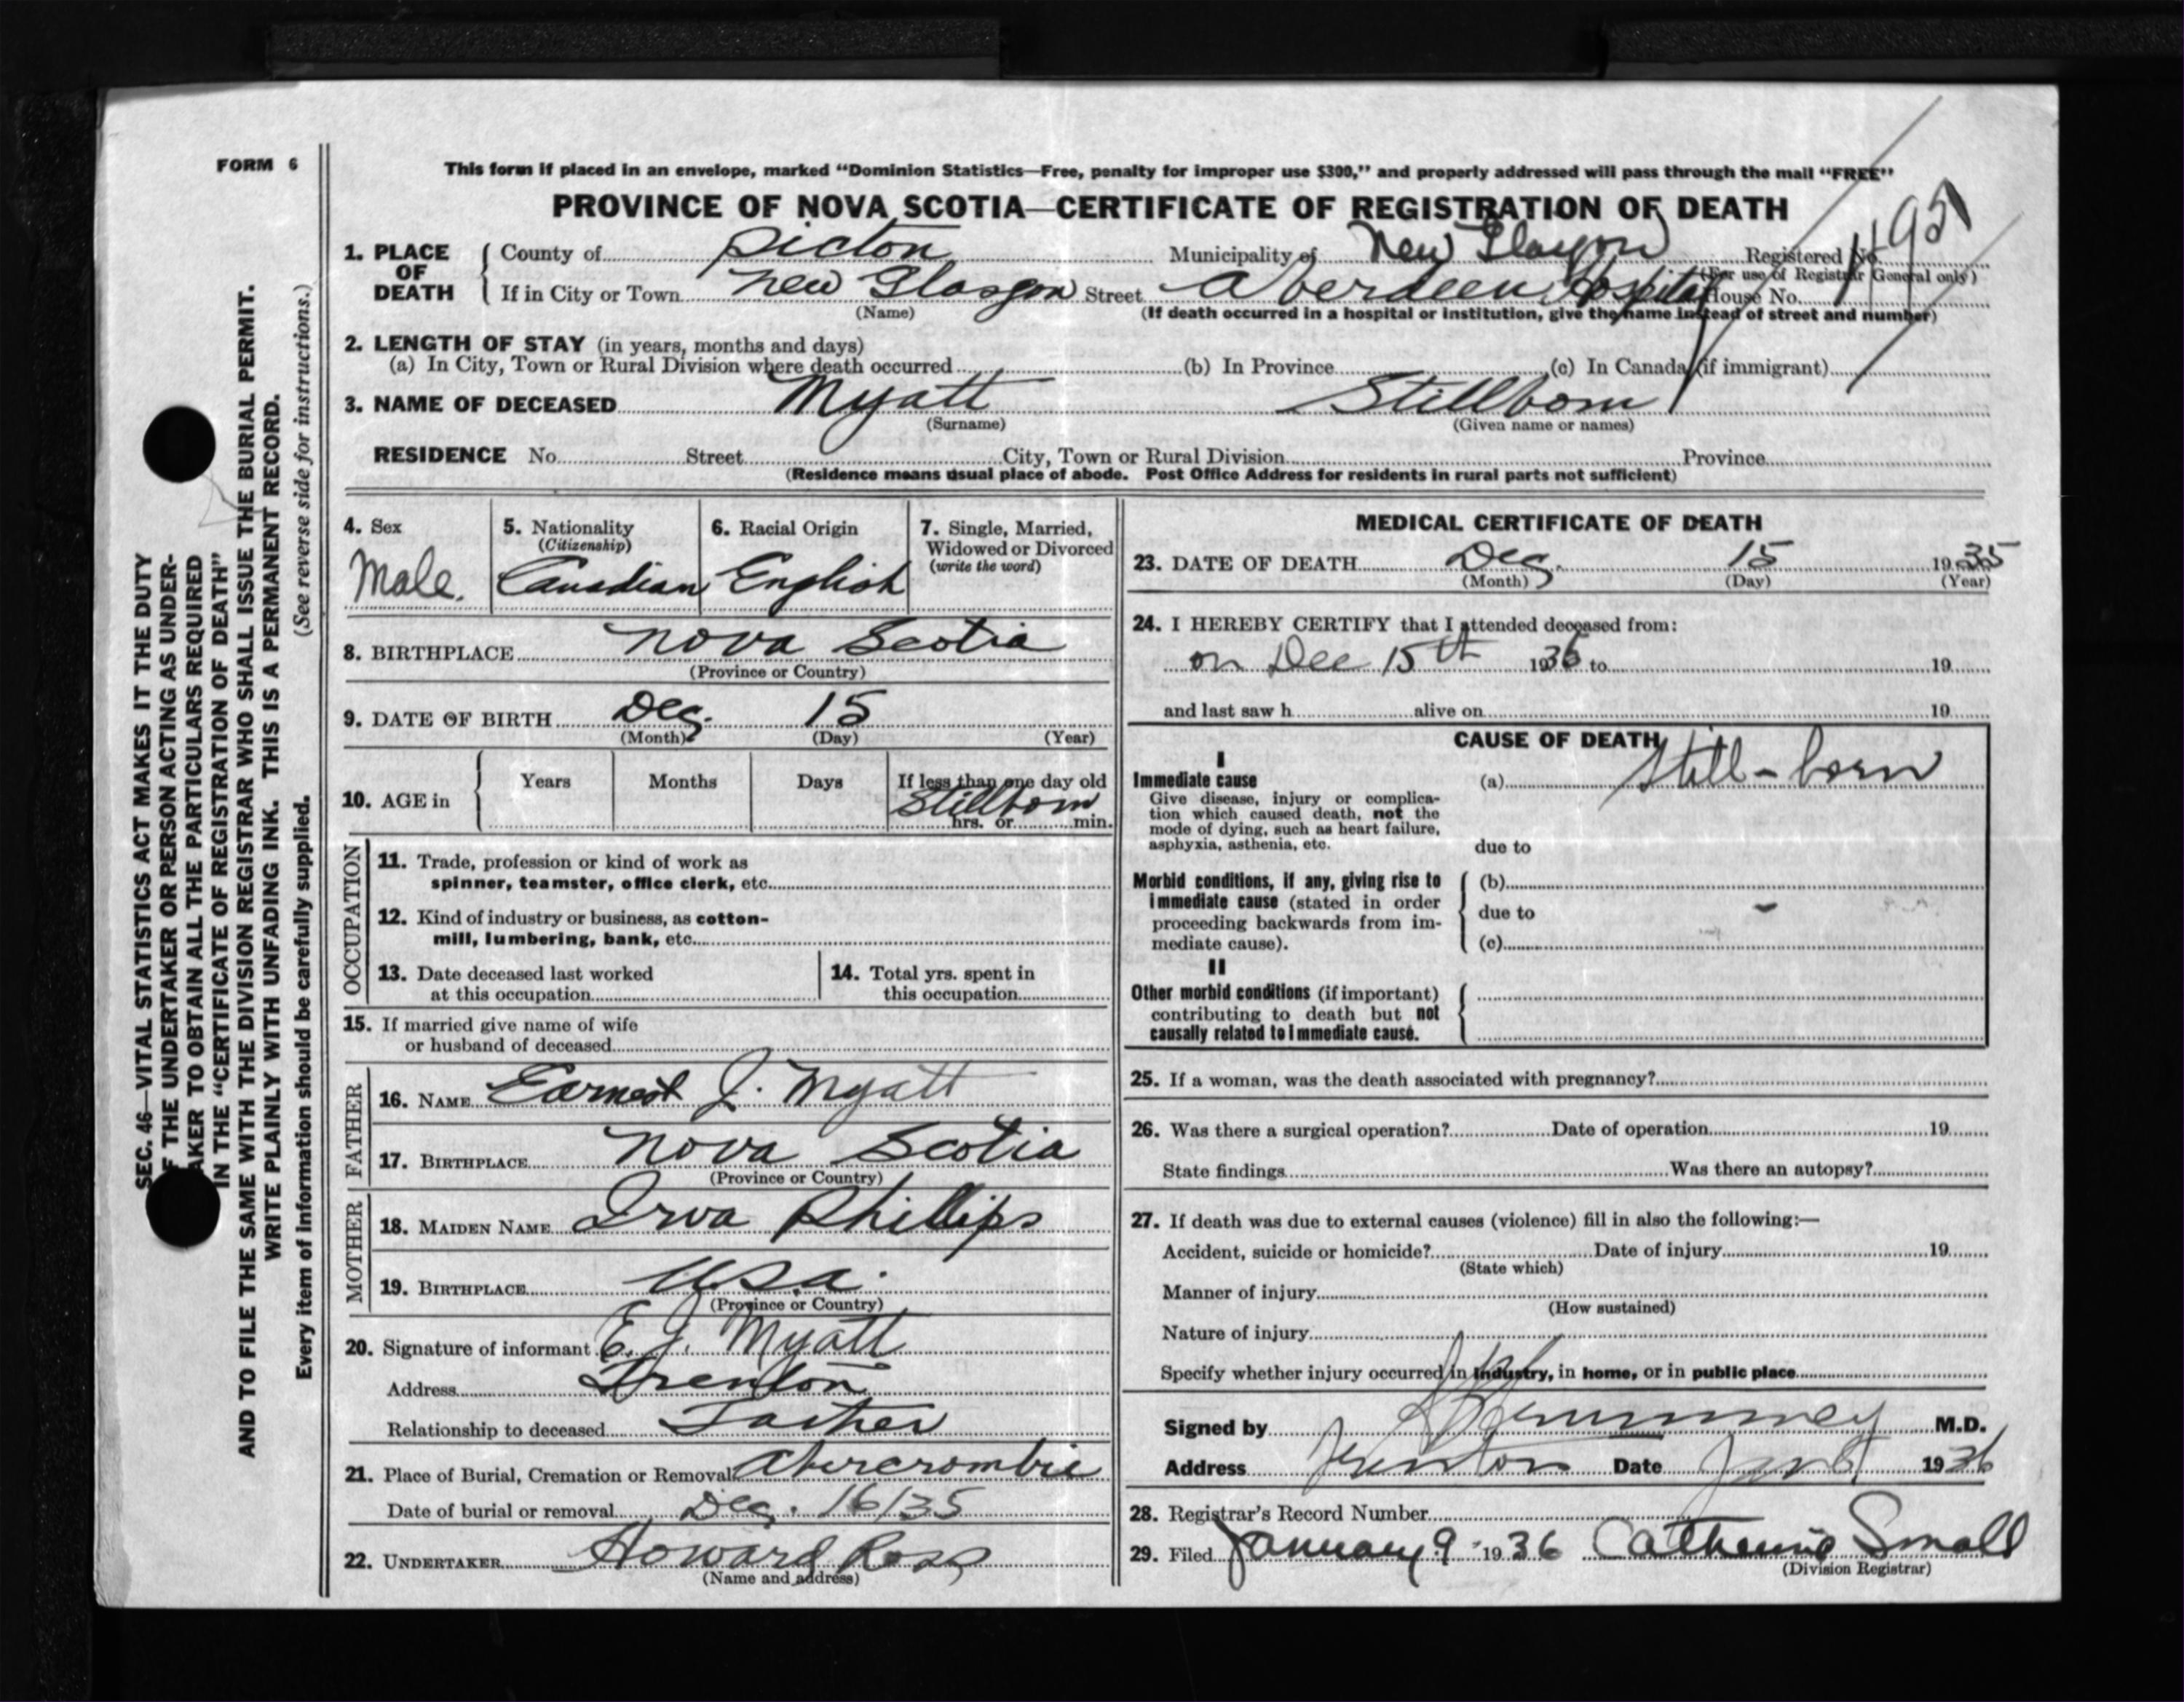 FORM 6
This form if placed in an envelope, marked "Dominion Statistics—Free, penalty for improper use $300," and properly addressed will pass through the mail "FREE"
PROVINCE OF NOVA SCOTIA—CERTIFICATE OF REGISTRATION OF DEATH
1. PLACE OF DEATH
County of Picton Municipality of New Glasgow Registered No.
(For use of Registrar General only)
If in City or Town New Glasgow Street Aberdeen Hospital House No.
(Name) (If death occurred in a hospital or institution, give the name instead of street and number)
2. LENGTH OF STAY (in years, months and days)
(a) In City, Town or Rural Division where death occurred (b) In Province (c) In Canada (if immigrant)
3. NAME OF DECEASED Myatt Stillborn
(Surname) (Given name or names)
RESIDENCE No. Street City, Town or Rural Division Province
(Residence means usual place of abode. Post Office Address for residents in rural parts not sufficient)
4. Sex
Male.
5. Nationality
(Citizenship)
Canadian
6. Racial Origin
English
7. Single, Married,
Widowed or Divorced
(write the word)
8. BIRTHPLACE Nova Scotia
(Province or Country)
9. DATE OF BIRTH Dec. 15
(Month) (Day) (Year)
10. AGE in
Years Months Days If less than one day old
Stillborn
hrs. or min.
OCCUPATION
11. Trade, profession or kind of work as
spinner, teamster, office clerk, etc.
12. Kind of industry or business, as cotton-
mill, lumbering, bank, etc.
13. Date deceased last worked
at this occupation
14. Total yrs. spent in
this occupation
15. If married give name of wife
or husband of deceased
FATHER
16. NAME Earnest J. Myatt
17. BIRTHPLACE Nova Scotia
(Province or Country)
MOTHER
18. MAIDEN NAME Irva Phillips
19. BIRTHPLACE U.S.A.
(Province or Country)
20. Signature of informant E. J. Myatt
Address Trenton
Relationship to deceased Father
21. Place of Burial, Cremation or Removal Abercrombie
Date of burial or removal Dec. 16/35
22. UNDERTAKER Howard Ross
(Name and address)
MEDICAL CERTIFICATE OF DEATH
23. DATE OF DEATH Dec. 15 1935
(Month) (Day) (Year)
24. I HEREBY CERTIFY that I attended deceased from:
on Dec 15th 1936 to 19
and last saw h alive on 19
CAUSE OF DEATH
I
Immediate cause
Give disease, injury or complica-
tion which caused death, not the
mode of dying, such as heart failure,
asphyxia, asthenia, etc.
(a) Still-born
due to
Morbid conditions, if any, giving rise to
immediate cause (stated in order
proceeding backwards from im-
mediate cause).
(b)
due to
(c)
II
Other morbid conditions (if important)
contributing to death but not
causally related to immediate cause.
25. If a woman, was the death associated with pregnancy?
26. Was there a surgical operation? Date of operation 19
State findings Was there an autopsy?
27. If death was due to external causes (violence) fill in also the following:—
Accident, suicide or homicide? Date of injury 19
(State which)
Manner of injury
(How sustained)
Nature of injury
Specify whether injury occurred in industry, in home, or in public place
Signed by M.D.
Address Trenton Date 1936
28. Registrar's Record Number
29. Filed January 9 1936 Catherine Small
(Division Registrar)
SEC. 46—VITAL STATISTICS ACT MAKES IT THE DUTY
OF THE UNDERTAKER OR PERSON ACTING AS UNDER-
TAKER TO OBTAIN ALL THE PARTICULARS REQUIRED
IN THE "CERTIFICATE OF REGISTRATION OF DEATH"
AND TO FILE THE SAME WITH THE DIVISION REGISTRAR WHO SHALL ISSUE THE BURIAL PERMIT.
WRITE PLAINLY WITH UNFADING INK. THIS IS A PERMANENT RECORD.
Every item of information should be carefully supplied. (See reverse side for instructions.)